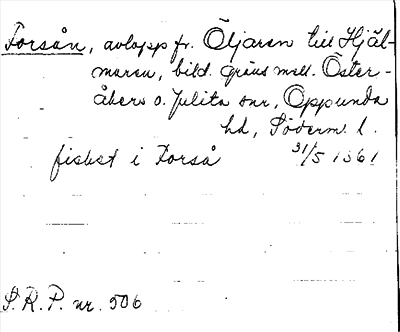 Forsån, avlopp fr. Öljaren till Hjäl-
maren, bild. gräns mell. Öster-
åkers o. Julita snr, Oppunda
hd, Söderm. l.
fiskst i Forså 31/5 1361
S.R.P. nr. 506